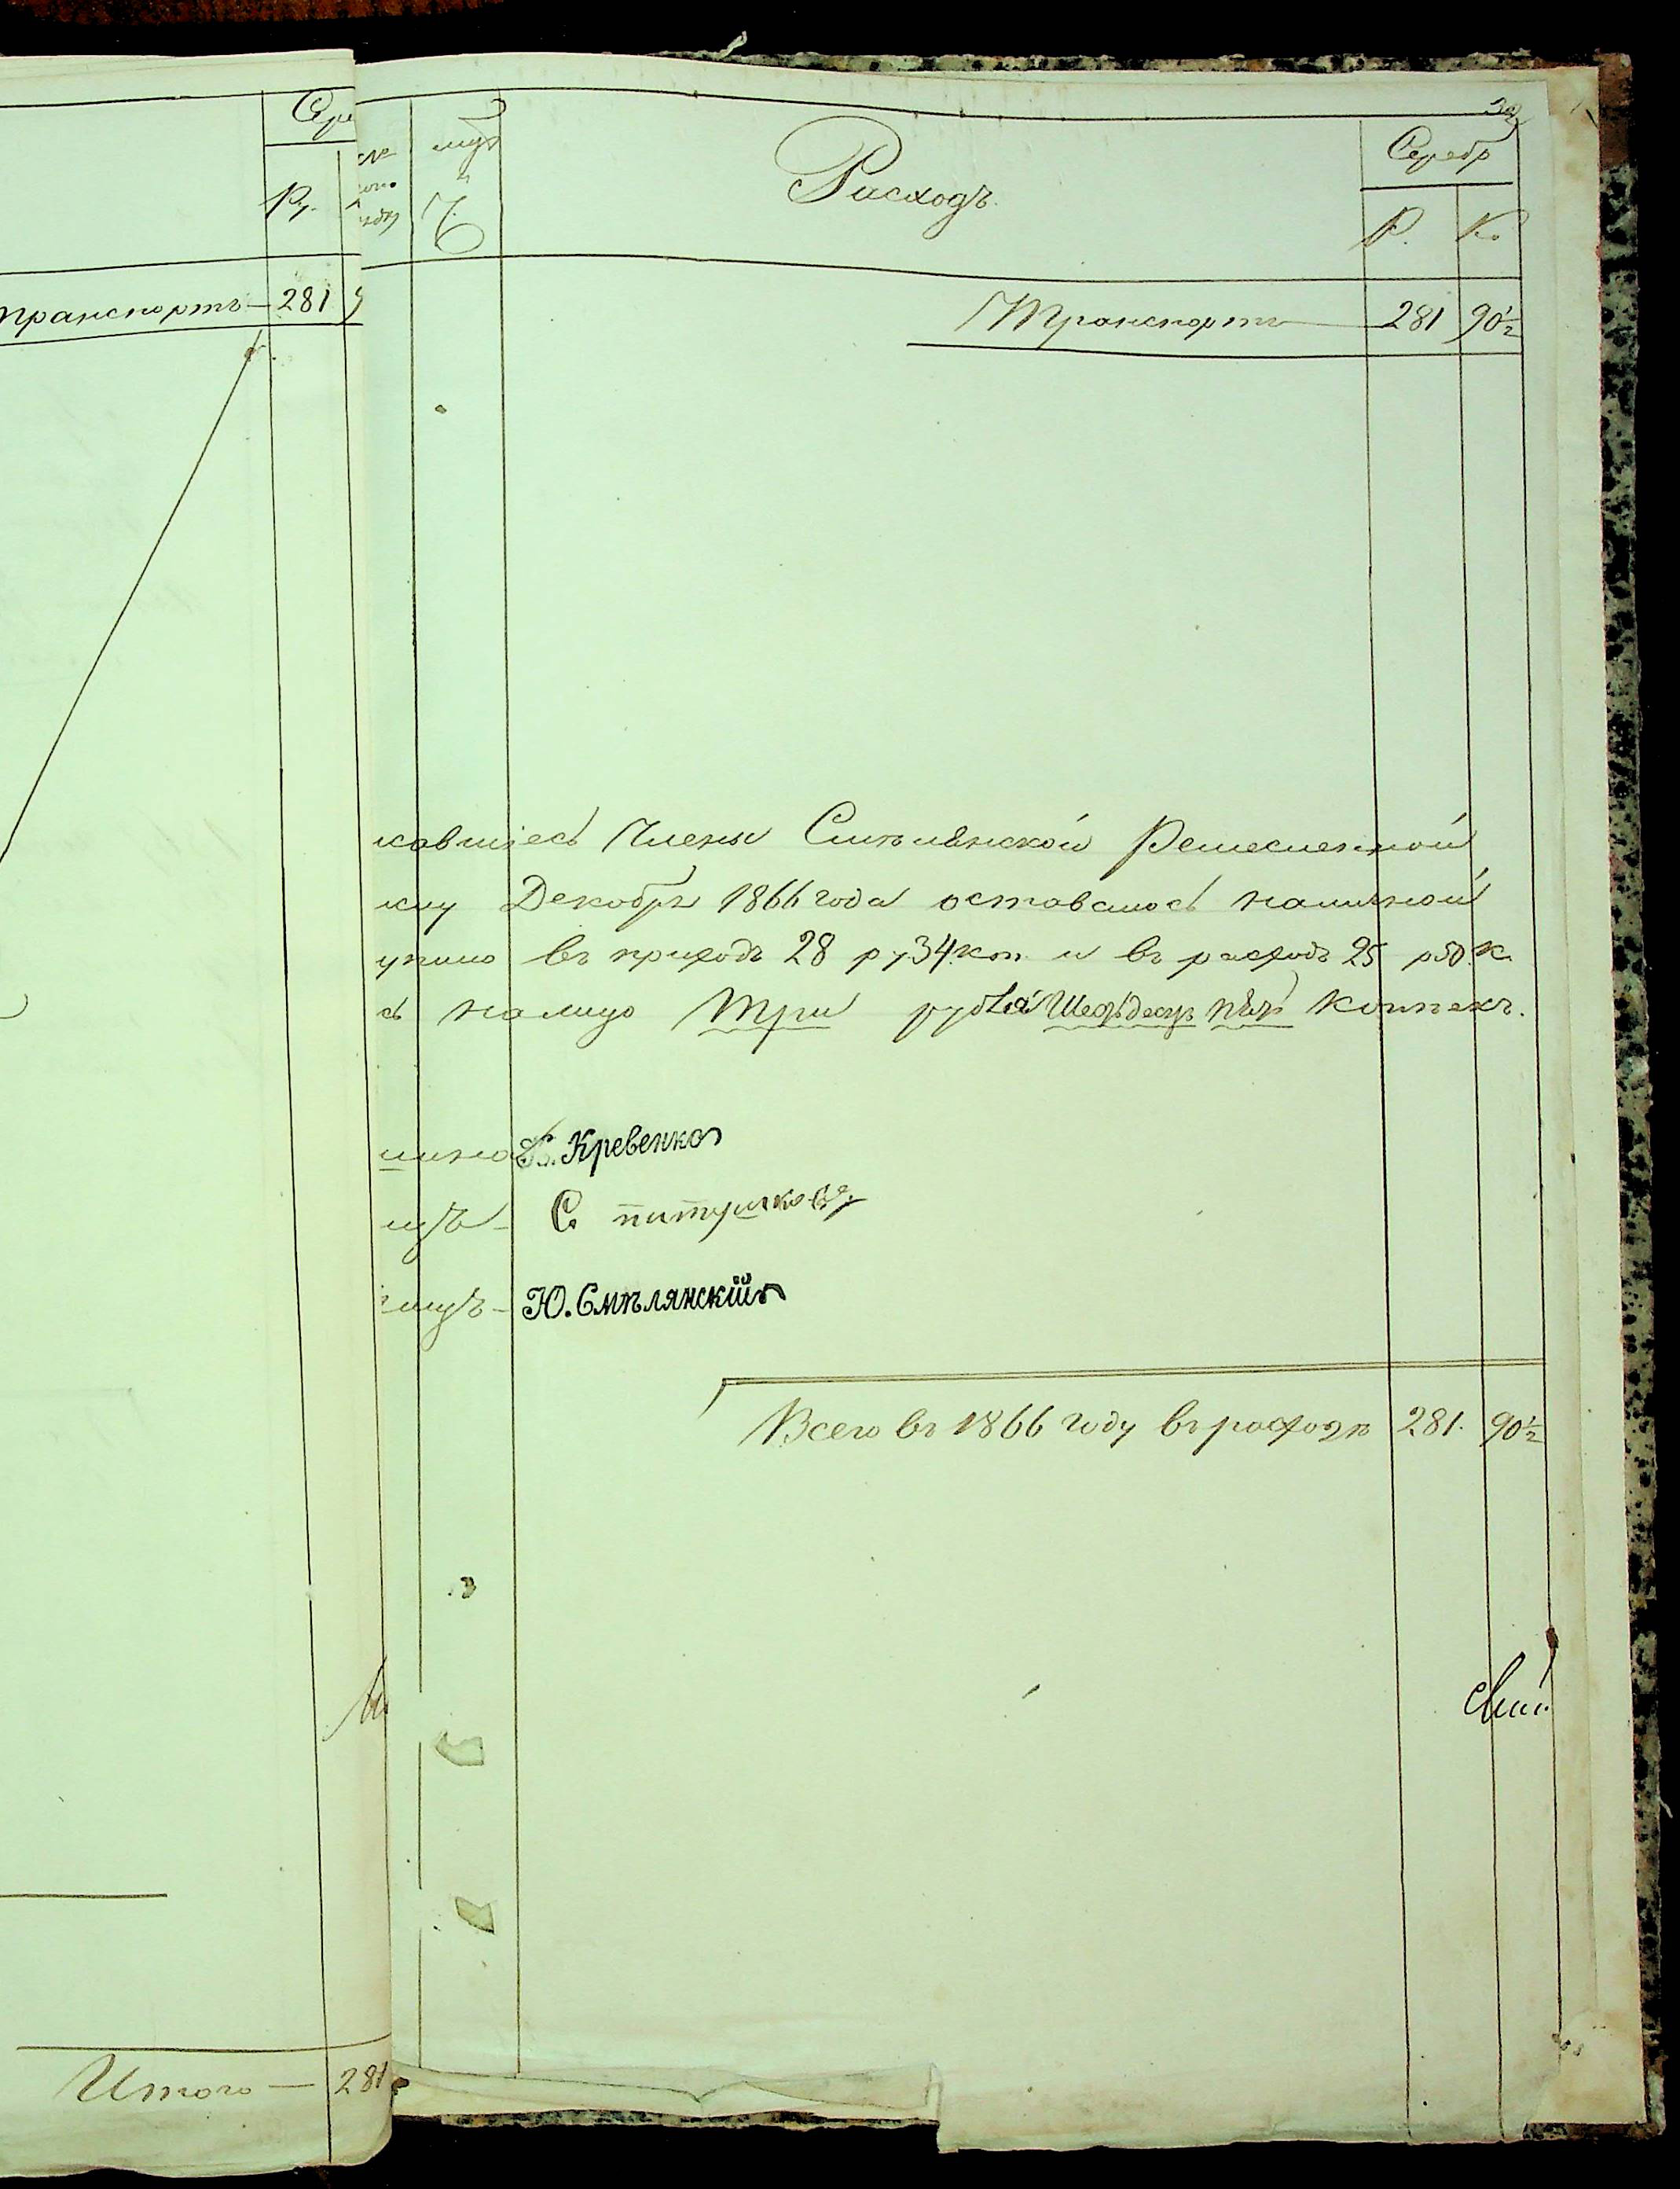 Сере
Ру.
транспортъ — 281 9
Итого — 281
Расходъ.
Серебр
Р. К.
Транспортъ 281 90½
кавшіесь Члены Смѣлянской Ремесленной
Декабрѣ 1866 года оставалось наличной
упило въ приходъ 28 ру 34 коп. и въ расходъ 25 р 50 к.
ь налицо Три рубля Шесдесят пять копѣекъ.
шина К. Кревенко
С. питушкова
Ю. Смѣлянскій
Всего въ 1866 году въ расходѣ 281. 90½